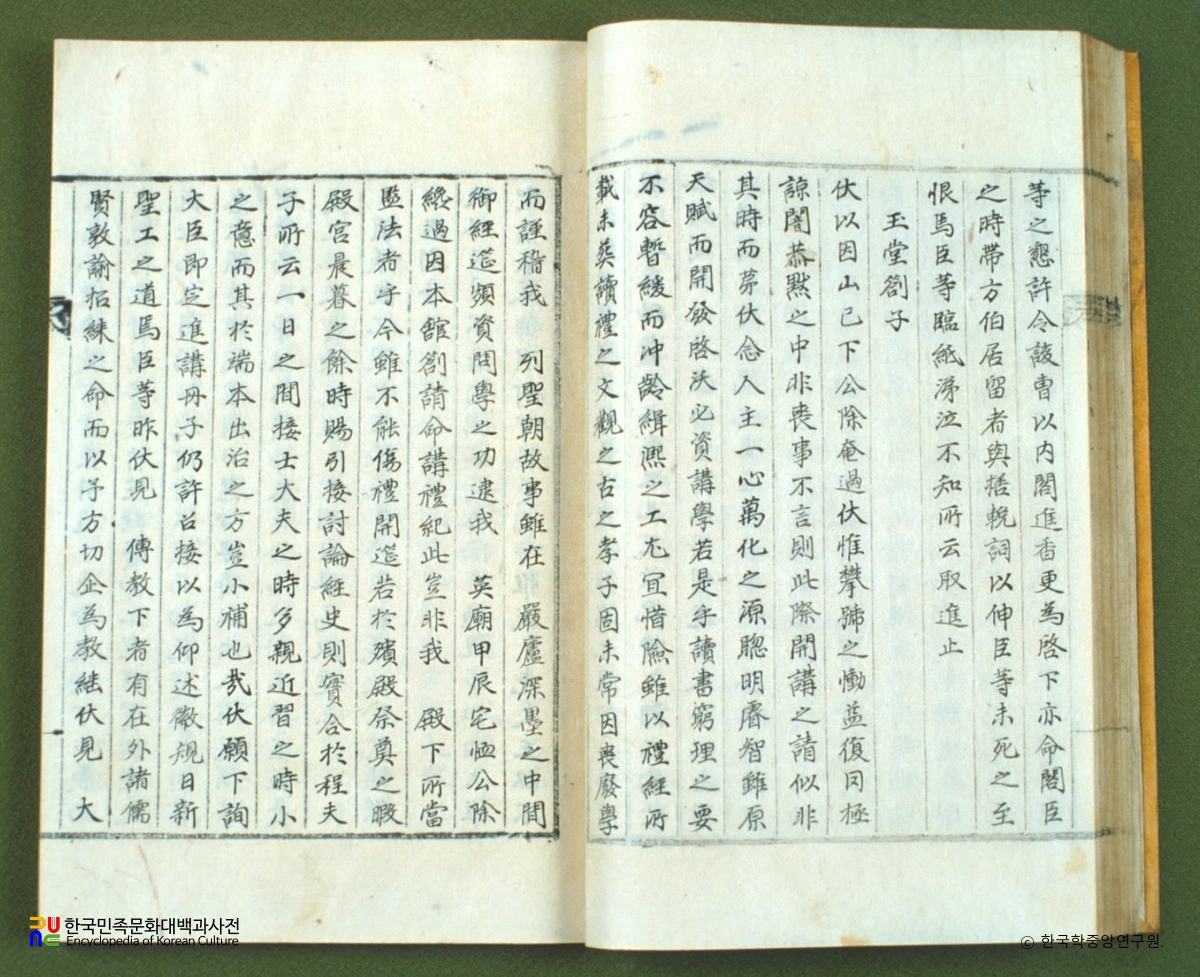 等之懇許令該曹以內閣進香更為啓下亦命閣臣
之時帶方伯居留者與搢輓詞以伸臣等未死之至
恨焉臣等臨紙涕泣不知所云取進止
玉堂劄子
伏以因山已下公除奄過伏惟攀號之慟益復罔極
諒闇恭默之中非喪事不言則此際開講之請似非
其時而第伏念人主一心萬化之源聰明睿智雖原
天賦而開發啓沃必資講學若是乎讀書窮理之要
不容暫緩而冲齡緝熙之工尤宜惜陰雖以禮經所
載未葬讀禮之文觀之古之孝子固未常因喪廢學
而謹稽我 列聖朝故事雖在 嚴廬深墨之中間
御經筵頻資問學之功逮我 英廟甲辰宅恤公除
纔過因本館劄請命講禮紀此豈非我 殿下所當
監法者乎今雖不能傷禮開筵若於殯殿祭奠之暇
殿宮晨暮之餘時賜引接討論經史則實合於程夫
子所云一日之間接士大夫之時多親近習之時小
之意而其於端本出治之方豈小補也哉伏願下詢
大臣即定進講冊子仍許召接以為仰述徽規日新
聖工之道焉臣等昨伏見 傳教下者有在外諸儒
賢敦諭招練之命而以予方切企為教繼伏見 大
한국민족문화대백과사전
Encyclopedia of Korean Culture
© 한국학중앙연구원.